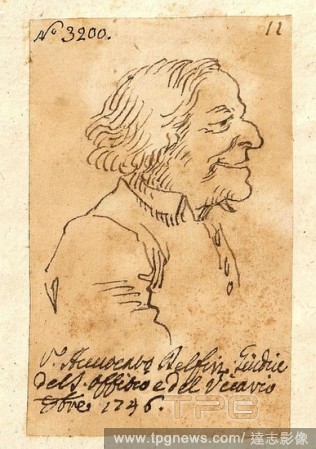 No 3200.
11
Sr. Avvocato Delfini Giudice
del S. Offitio e del Vicario
8bre 1746.
TPG
www.tpgnews.com / 達志影像